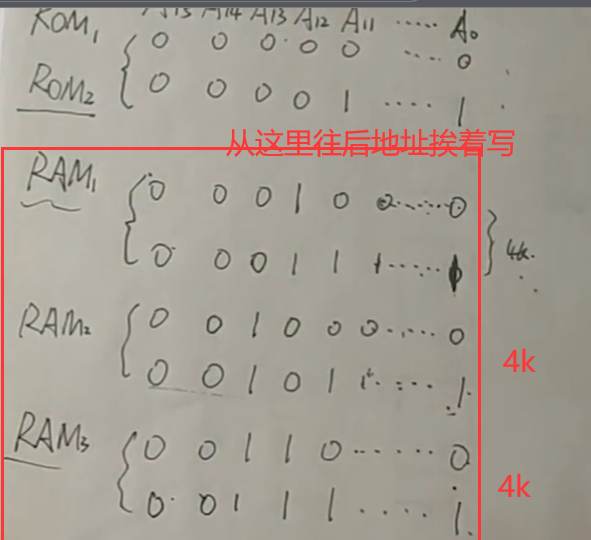 A15 A14 A13 A12 A11 ..... A0
ROM1 { 0 0 0 0 0 .... 0
ROM2 0 0 0 0 1 .... 1
从这里往后地址挨着写
RAM1 { 0 0 0 1 0 0 ...... 0
0 0 0 1 1 1 ...... 1 } 4k.
RAM2 { 0 0 1 0 0 0 ..... 0
0 0 1 0 1 1 .... 1 4k
RAM3 { 0 0 1 1 0 ...... 0
0 0 1 1 1 .... 1 4k